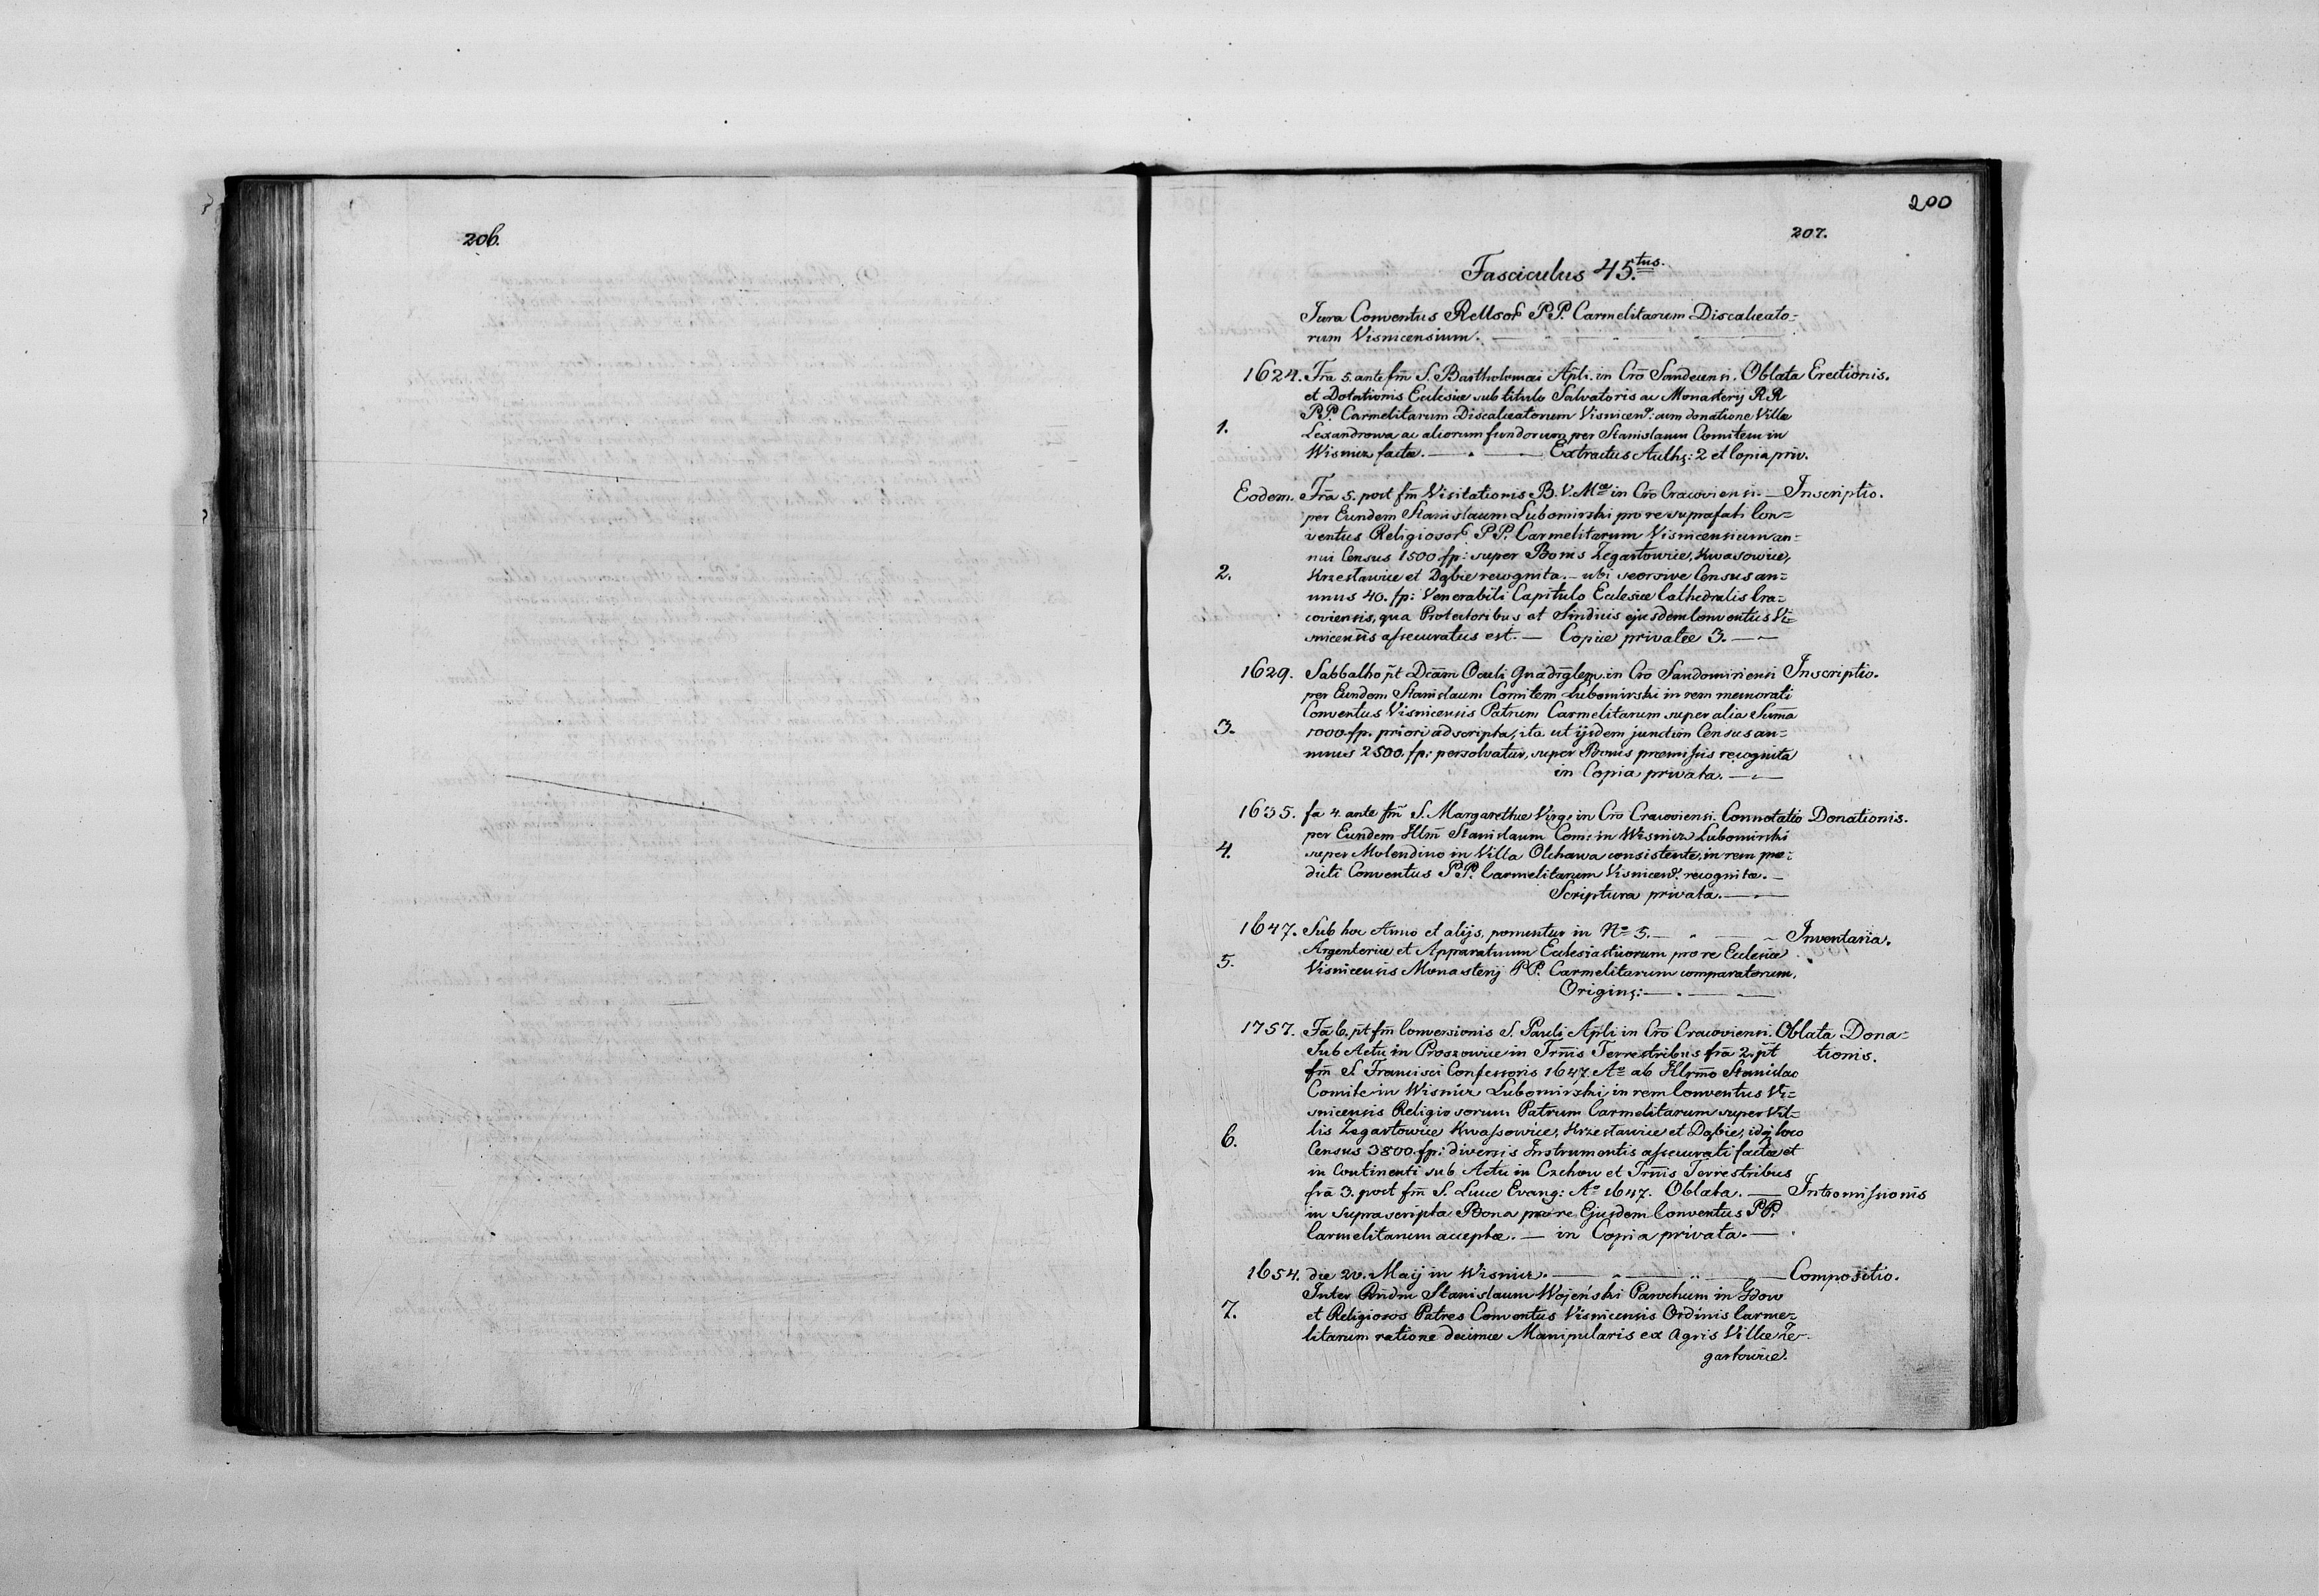 206.
200
207.
Fasciculus 45.tus.
Jura Conventus Rellsor PP. Carmelitarum Discalceato=
rum Visnicensium.
1624. Fra 5. ante fm̄ S. Bartholomæi Apli. in Crō Sandecensi. Oblata Erectionis.
et Dotationis Ecclesiæ sub titulo Salvatoris ac Monasterij RR
PP. Carmelitarum Discalceatorum Visnicen: cum donatione Villæ
1. Lexandrowa ac aliorum fundorum per Stanislaum Comitem in
Wisnicz factæ. Extractus Auth: 2 et Copia priv.
Eodem. Frā 5. post fm̄ Visitationis B. V. Mæ in Crō Cracoviensi. Inscriptio.
per Eundem Stanislaum Lubomirski pro re suprafati Con=
ventus Religiosor PP. Carmelitarum Visnicensium an=
nui Census 1500 fp: super Bonis Zegartowice, Kwasowice,
2. Krzesławice et Dąbie recognita. – ubi seorsive Census an=
nuus 40. fp: Venerabili Capitulo Ecclesiæ Cathedralis Cra=
coviensis, qua Protectoribus et Sindicis ejusdem Conventus Vi=
snicensis assecuratus est. — Copiæ privatæ 3.
1629. Sabbatho p̄t Dcām Oculi Quadrglem in Crō Sandomiriensi Inscriptio.
per Eundem Stanislaum Comitem Lubomirski in rem memorati
Conventus Visnicensis Patrum Carmelitarum super alia Sum̄a
3. 1000 fp. priori adscripta, ita ut ijsdem junctim Census an=
nuus 2500. fp: persolvatur, super Bonis præmissis recognita
in Copia privata.
1635. fa 4. ante fm̄ S. Margarethæ Virg: in Crō Cracoviensi. Connotatio Donationis.
per Eundem Illm̄ Stanislaum Com: in Wisnicz Lubomirski
4. super Molendino in Villa Olchawa consistente, in rem præ=
dicti Conventus PP. Carmelitarum Visnicen. recognitæ. –
Scriptura privata.
1647. Sub hoc Anno et alijs, ponuntur in No 5. Inventaria.
Argenteriæ et Apparatuum Ecclesiasticorum pro re Ecclesiæ
5. Visnicensis Monasterij PP. Carmelitarum comparatorum.
Origin:
1757. Fa 6. p̄t fm̄ Conversionis S. Pauli Apli in Crō Cracoviensi. Oblata Dona=
Sub Actu in Proszowice in Trm̄is Terrestribus fra 2. p̄t tionis.
fm̄ S. Francisci Confessoris 1647. Ao ab Illrm̄o Stanislao
Comite in Wisnicz Lubomirski in rem Conventus Vi=
snicensis Religiosorum Patrum Carmelitarum super Vil=
lis Zegartowice Kwassowice, Krzesławice et Dąbie, idq loco
6. Census 3800. fp: diversis Instrumentis assecurati factæ et
in Continenti sub Actu in Czchow et Trm̄is Terrestribus
fra 3. post fm̄ S. Lucæ Evang: Ao 1647. Oblata. — Intromissionis
in suprascripta Bona pro re Ejusdem Conventus PP.
Carmelitarum acceptæ. — in Copia privata.
1654. die 20. Maij in Wisnicz. Compositio.
Inter Rndm̄ Stanislaum Wojeński Parochum in Gdow
7. et Religiosos Patres Conventus Visnicensis Ordinis Carme=
litarum ratione decimæ Manipularis ex Agris Villæ Ze=
gartowice.